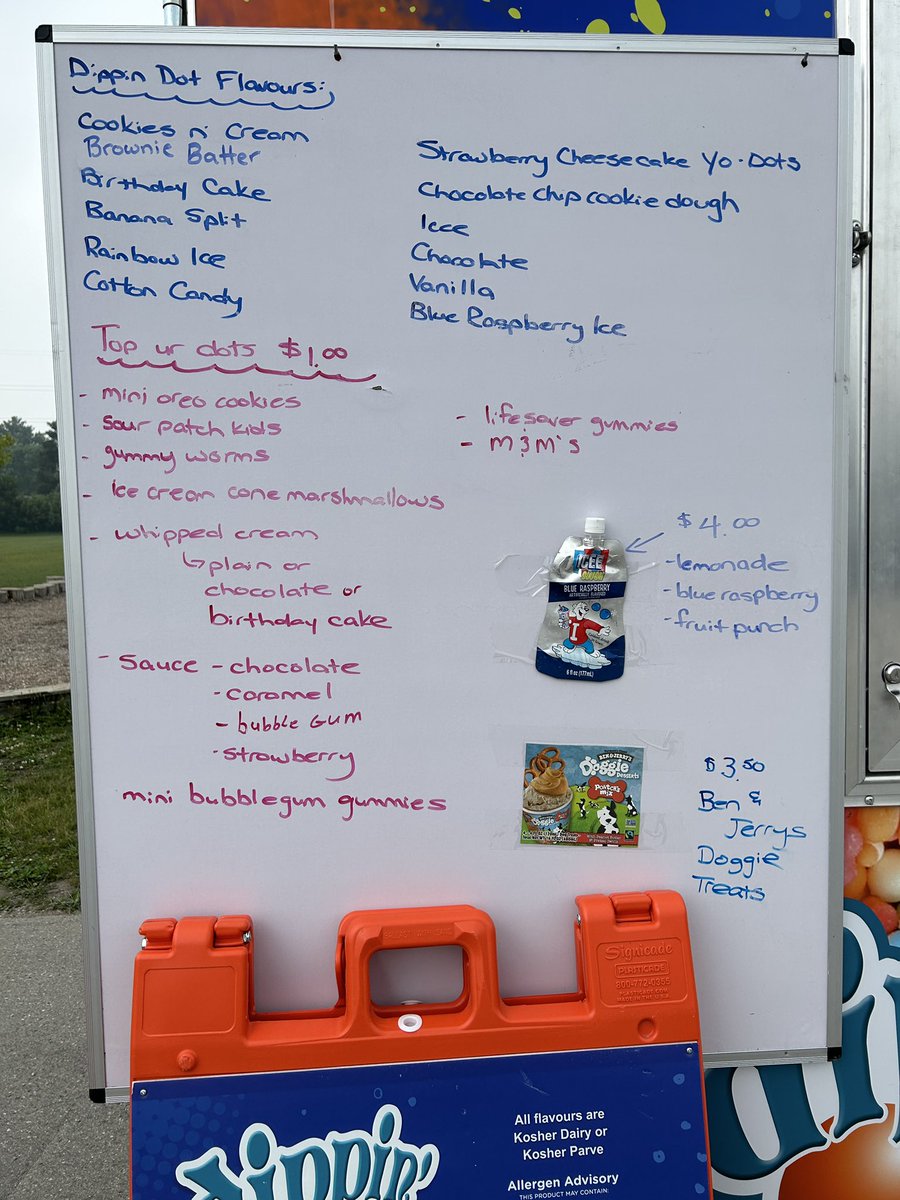 Dippin Dot Flavours:
Cookies n' Cream
Brownie Batter
Birthday Cake
Banana Split
Rainbow Ice
Cotton Candy
Strawberry Cheesecake Yo-Dots
Chocolate Chip cookie dough
Icee
Chocolate
Vanilla
Blue Raspberry Ice
Top ur dots $1.00
- mini oreo cookies
- sour patch kids
- gummy worms
- ice cream cone marshmallows
- whipped cream
↳ plain or
chocolate or
birthday cake
- Sauce - chocolate
- caramel
- bubble Gum
- strawberry
mini bubblegum gummies
- lifesaver gummies
- m & m's
$4.00
- lemonade
- blue raspberry
- fruit punch
ICEE
BLUE RASPBERRY
ARTIFICIALLY FLAVORED
I
6 fl oz (177mL)
BEN & JERRY'S
Doggie
Desserts
Pontch's
mix
Doggie
$3.50
Ben &
Jerrys
Doggie
Treats
Signicade
PLASTICADE
800-772-0355
PLASTICADE.COM
MADE IN THE U.S.A
All flavours are
Kosher Dairy or
Kosher Parve
Allergen Advisory
THIS PRODUCT MAY CONTAIN:
dippin'